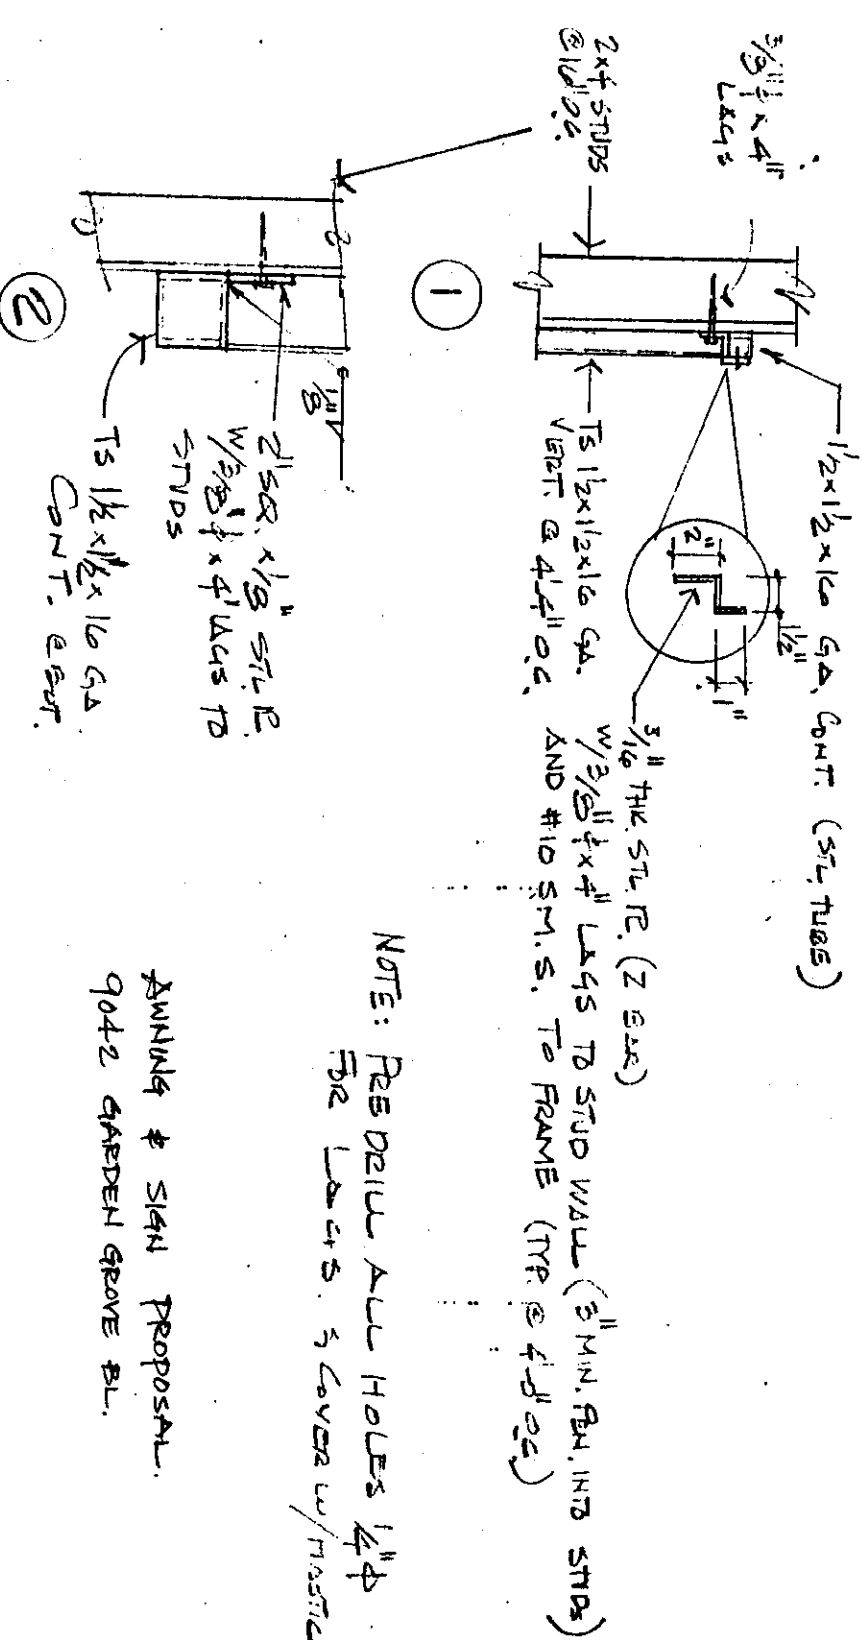 3/8"φ x 4"
LAGS
2x4 STUDS
@ 16" O.C.
1½x1½x16 GA. CONT. (STL. TUBE)
2"
1½"
1"
3/16" THK. STL. PL. (Z BAR)
W/ 3/8"φ x 4" LAGS TO STUD WALL (3" MIN. PEN. INTO STUDS)
AND #10 S.M.S. TO FRAME (TYP. @ 4'-0" O.C.)
TS 1½x1½x16 GA.
VERT. @ 4'-0" O.C.
1
1/8" V
2" SQ. x 1/8" STL. PL.
W/ 3/8"φ x 4" LAGS TO
STUDS
TS 1½x1½x16 GA
CONT. @ BOT.
2
NOTE: PREDRILL ALL HOLES ¼"φ
FOR LAGS. & COVER W/ MASTIC
AWNING & SIGN PROPOSAL.
9042 GARDEN GROVE BL.